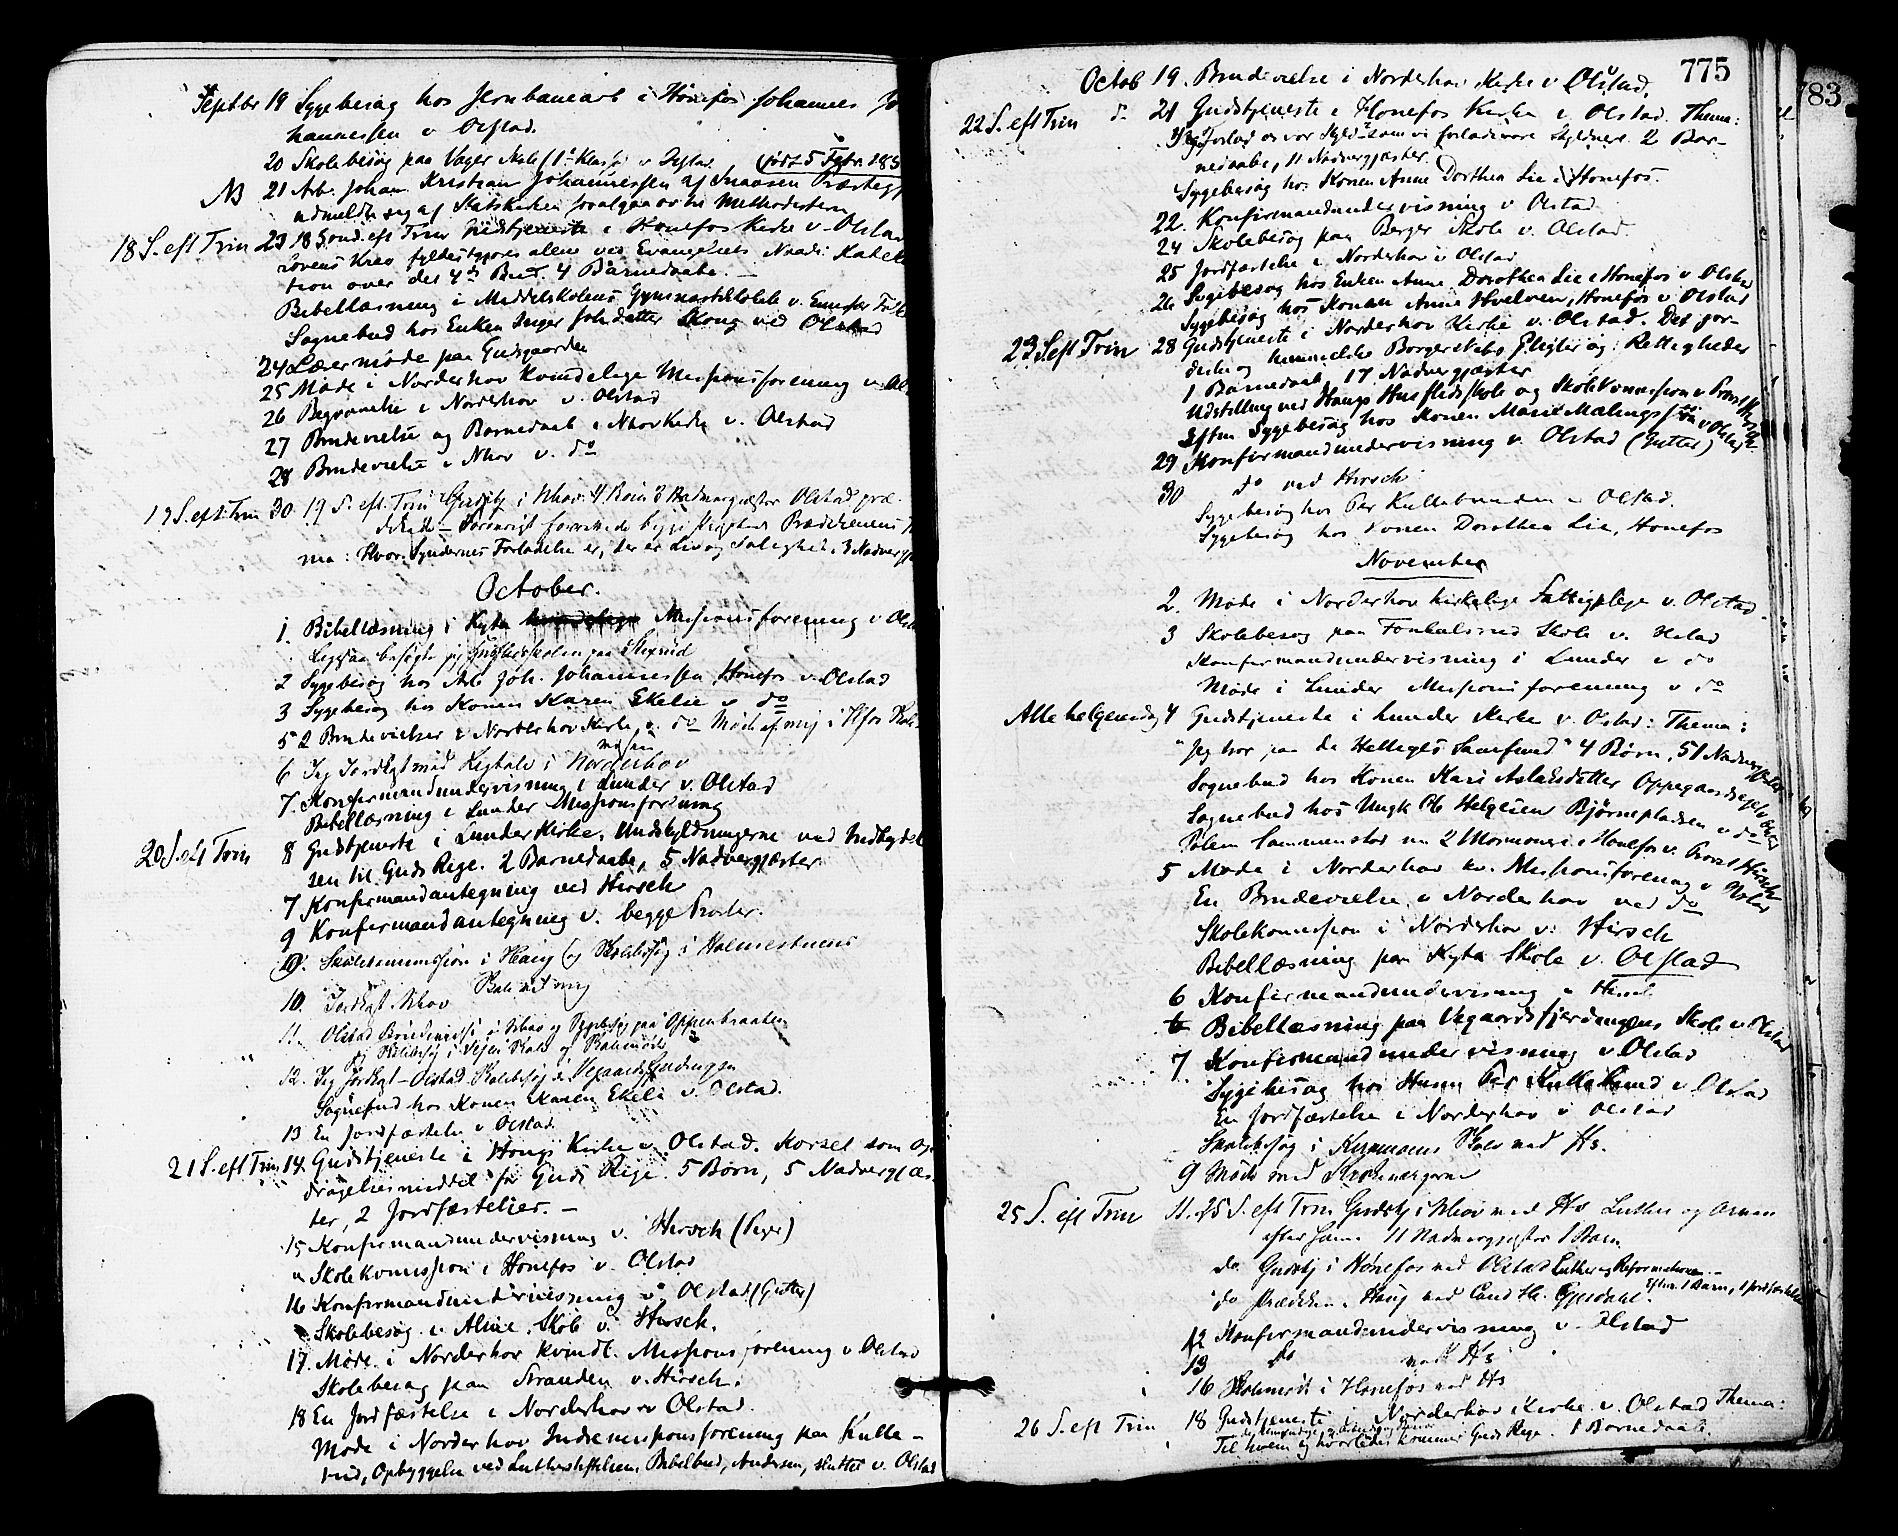 Septbr 19 Sygebesøg hos Jernbanearb i Hønefos Johannes Jo
hannessen v Olstad.
20 Skolebesøg paa Vager Skole (1ste Klasse) v Olstad
NB 21 Arb. Johan Kristian Johannessen af Snaasen Præstegj
udmeldte sig af Statskirken for at gaa over til Methodisterne
18 S. eft Trin 23 18 Sønd. eft Trin Gudstjeneste i Honefos Kirke v. Olstad
Lovens Krav fyldestgjøres alene ved Evangeliets Naade Kateki
tion over det 4de Bud. 4 Barnedaabe. —
Bibellæsning i Middelskolens Gymnastiklokale v.
Sognebud hos Enken Inger Johsdatter Skong ved Olstad
24 Lærermøde paa
25 Møde i Norderhov Kvindelige Missionsforening v. Ol
26 Begravelse i Norderhov v. Olstad
27 Brudevielse og Barnedaab i Nhov Kirke v. Olstad
28 Brudevielse i Nhov v. do
19 S. eft. Trin 30. 19 S. eft. Trin Gudstj i Nhov. 4 Børn 3 Nadvergjæster Olstad præ-
dikede —
ma: Hvor Syndernes Forladelse er, der er Liv og Salighed. 3 Nadvergj
October.
1. Bibellæsning i Hyta Missionsforening v Olst
2 Sygebesøg hos Arb Joh. Johannessen Honefos v. Olstad
3 Sygebesøg hos Konen Karen Ekelie v do
5 2 Brudevielser i Norderhov Kirke v. do
6 Jeg Jordfgt med Ligtale i Norderhov
7. Konfirmandundervisning i Lunder v. Olstad
Bibellæsning i Lunder Missionsforening
20 S. eft Trin 8 Gudstjeneste i Lunder Kirke. Undskyldningerne ved Indbydel
sen til Guds Rige. 2 Barnedaabe, 5 Nadvergjæster.
7 Konfirmandantegning ved Hirsch
9 Konfirmandantegning v. begge Præster.
10. Skolekommission i Haug og Skolebesøg i
10. Jordfgt. Nhov
11. Olstad Brudevielse i Nhov og Sygebesøg paa Oppenbraaten
12. Jeg Jordfgt — Olstad Skolebesøg i Vegaardsfjerdingen
Sognebud hos Konen Karen Ekelie v. Olstad.
13 En Jordfæstelse v Olstad
21 S. eft Trin 14. Gudstjeneste i Haugs Kirke v. Olstad. Korset som Op-
dragelsesmiddel for Guds Rige. 5 Børn, 5 Nadvergjæs
ter, 2 Jordfæstelser. —
15 Konfirmandundervisning v. Hirsch (Piger)
" Skolekomission i Honefos v. Olstad
16 Konfirmandundervisning v. Olstad (Gutter)
Skolebesøg i Alme Skole v. Hirsch.
17. Møde i Norderhov kvindl. Missionsforening v Olstad
Skolebesøg paa Stranden v. Hirsch.
18 En Jordfæstelse i Norderhov v Olstad.
Møde i Norderhov Indremissionsforening paa Kulle-
rud, Opbyggelse ved Lutherstiftelsens Bibelbud, Andersen, sluttet v. Olstad
775
783
Octob 19. Brudevielse i Norderhov Kirke v Olstad.
22 S. eft Trin do 21 Gudstjeneste i Honefos Kirke v Olstad. Thema:
Forlad os vor Skyld som vi forlade vore Skyldnere. 2 Bar-
nedaabe, 11 Nadvergjæster.
Sygebesøg hos Konen Anne Dorthea Lie i Honefos.
22. Konfirmandundervisning v Olstad
24 Skolebesøg paa Berger Skole v. Olstad
25 Jordfæstelse i Norderhov v Olstad
26 Sygebesøg hos Enken Anne Dorothea Lie i Honefos v Olstad
Sygebesøg hos Konen Anne Hvelven, Honefos v. Olstad
23 S. eft Trin 28 Gudstjeneste i Norderhov Kirke v. Olstad. Det jor-
diske og himmelske Borgerskabs Pligter og Rettigheder
1 Barnedaab, 17 Nadvergjæster
Udstilling ved Haugs Husflidsskole og Skolekomission v Provst Hirsch
Eftm Sygebesøg hos Konen Marie Malings v Olstad
29 Konfirmandundervisning v. Olstad (Gutter)
30 do ved Hirsch
Sygebesøg hos Per Kullebunden v Olstad.
Sygebesøg hos Konen Dorothea Lie, Honefos
November
2. Møde i Norderhov kirkelige Fattigpleje v. Olstad
3 Skolebesøg paa Skole v. Olstad
Konfirmandundervisning i Lunder v do
Møde i Lunder Missionsforening v do
Allehelgensdag 4 Gudstjeneste i Lunder Kirke v. Olstad: Thema:
"Jeg tror paa de Helliges Samfund" 4 Børn, 51 Nadvergjæster
Sognebud hos Konen Kari Aslaksdatter Oppegaardseje v Olstad
Sognebud hos Ungk Ole Helgesen Bjørnepladsen v do
Sammenstød m 2 Mormoner i Honefos v. Provst Hirsch
5 Møde i Norderhov kv. Missionsforening v Olstad
En Brudevielse i Norderhov ved do
Skolekomission i Norderhov v. Hirsch
Bibellæsning paa Hyta Skole v. Olstad
6 Konfirmandundervisning v Hirsch
6 Bibellæsning paa Vegaardsfjerdingens Skole v. Olstad
7. Konfirmandundervisning v Olstad
Sygebesøg hos Husm Per Kullebund v Olstad
En Jordfæstelse i Norderhov v Olstad
Skolebesøg i Skole ved Hs.
9 Møde med
25 S. eft Trin 11. 25 S. eft Trin Gudstj i Nhov ved Hs Luther og Arven
efter ham 11 Nadvergjæster 1 Barn
do Gudstj i Hønefos ved Olstad Luther og Reformationen
do Prædiken i Haug ved Cand th. Gjesdahl. Eftm. 1 Barn, 1 Jordfæstelse
12 Konfirmandundervisning v. Olstad
13 do ved Hs
16 Skolemøde i Honefos ved Hs
26 S. eft Trin 18 Gudstjeneste i Norderhov Kirke v. Olstad Thema:
Til hvem og hvorledes kommer Guds Rige. 1 Barnedaab.